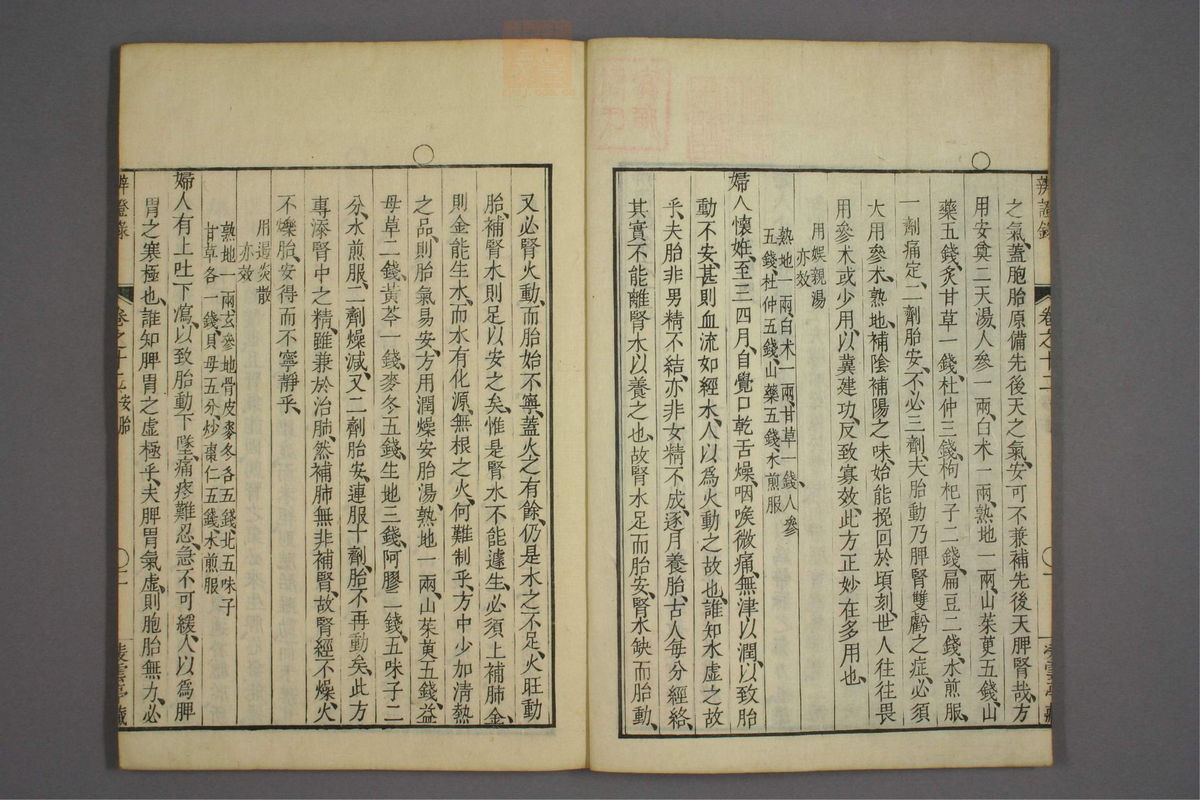 辨證錄 卷之十二
之氣、蓋胞胎原備先後天之氣、安可不兼補先後天脾腎哉、方
用安奠二天湯、人參一兩、白朮一兩、熟地一兩、山茱萸五錢、山
藥五錢、炙甘草一錢、杜仲三錢、枸杞子二錢、扁豆二錢、水煎服、
一劑痛定、二劑胎安、不必三劑、夫胎動乃脾腎雙虧之症、必須
大用參朮、熟地、補陰補陽之味、始能挽回於頃刻、世人往往畏
用參朮或少用、以冀建功、反致寡效、此方正妙在多用也、
用娛親湯
亦效
熟地一兩、白朮一兩、甘草一錢、人參
五錢、杜仲五錢、山藥五錢、水煎服
婦人懷姙、至三四月、自覺口乾舌燥、咽喉微痛、無津以潤、以致胎
動不安、甚則血流如經水、人以爲火動之故也、誰知水虛之故
乎、夫胎非男精不結、亦非女精不成、逐月養胎、古人每分經絡、
其實不能離腎水以養之也、故腎水足而胎安、腎水缺而胎動、
又必腎火動、而胎始不寧、蓋火之有餘、仍是水之不足、火旺動
胎、補腎水則足以安之矣、惟是腎水不能遽生、必須上補肺金、
則金能生水、而水有化源、無根之火、何難制乎、方中少加淸熱
之品、則胎氣易安、方用潤燥安胎湯、熟地一兩、山茱萸五錢、益
母草二錢、黃芩一錢、麥冬五錢、生地三錢、阿膠二錢、五味子二
分、水煎服、二劑燥減、又二劑胎安、連服十劑、胎不再動矣、此方
專添腎中之精、雖兼於治肺、然補肺無非補腎、故腎經不燥、火
不爍胎、安得而不寧靜乎、
用遏炎散
亦效
熟地一兩玄參地骨皮麥冬各五錢北五味子
甘草各一錢、貝母五分、炒棗仁五錢、水煎服
婦人有上吐下瀉、以致胎動下墜、痛疼難忍、急不可緩、人以爲脾
胃之寒極也、誰知脾胃之虛極乎、夫脾胃氣虛、則胞胎無力、必
辨證錄 卷之十二安胎 〇二